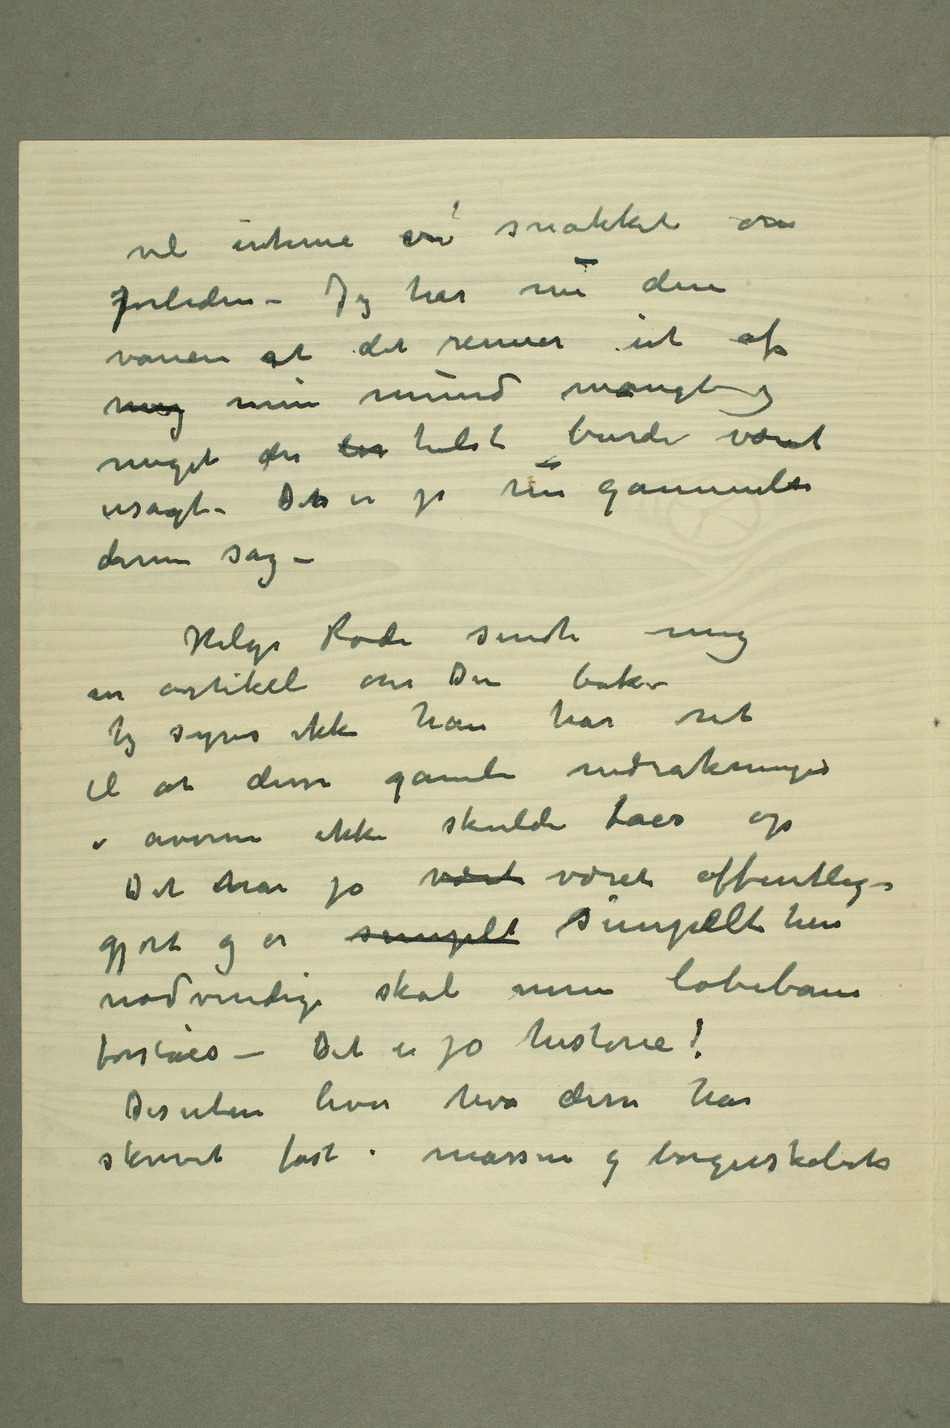 vel intime vi snakket om
forleden – Jeg har nu den
vanen at det renner ut af
meg min mund mangt og
meget der helst burde været
usagt – Det er jo nu gammeldo
denne sag –
Helge Rode sendte mig
en artikel om Din bok –
Jeg synes ikke han har ret
il at disse gamle nedrakninger
i aviserne ikke skulde taes op
Det har jo været været offentlig-
gjort og er simpelt simpelt hen
nødvendige skal min løbebane
forståes – Det er jo historie!
Desuten lever hva disse har
skrevet fast i massen og borgerskabets